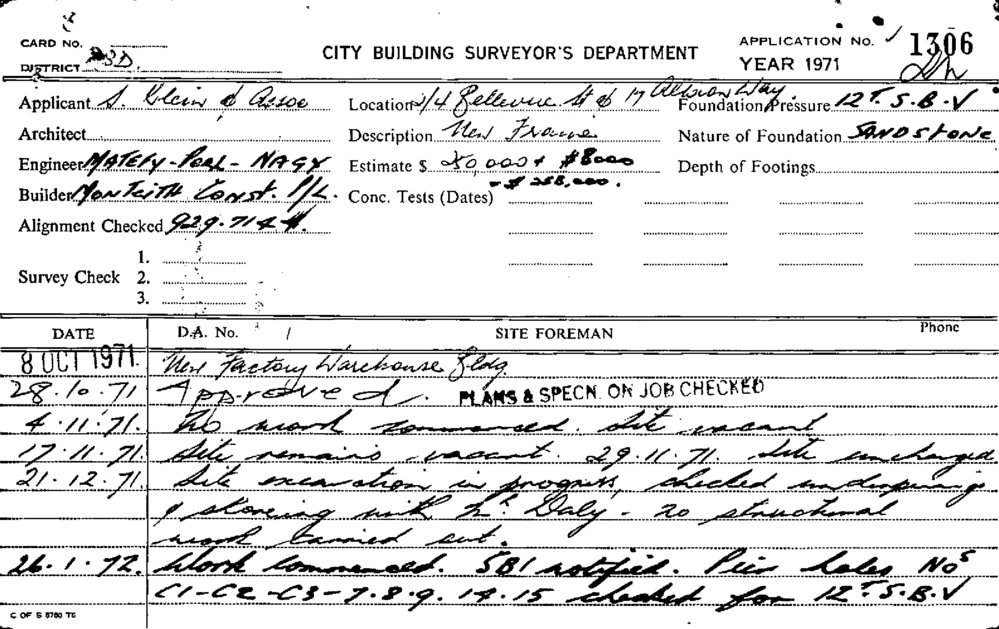 CARD No.
DISTRICT
CITY BUILDING SURVEYOR'S DEPARTMENT
APPLICATION No. 1306
YEAR 1971
Applicant S. Klein & Assoc Location 2/4 Bellevue St & 17 Albion Way Foundation Pressure 12T. S.B.V
Architect Description New Frame Nature of Foundation SANDSTONE
Engineer MATEFY-PEAL-NAGY Estimate $ 250,000 + $8000 Depth of Footings
= $258,000.
Builder MONTEITH CONST. P/L. Conc. Tests (Dates)
Alignment Checked 929.71
Survey Check 1.
2.
3.
DATE D.A. No. / SITE FOREMAN Phone
8 OCT 1971. New Factory Warehouse Bldg.
28.10.71 Approved. PLANS & SPECN. ON JOB CHECKED
4.11.71. No work commenced. Site vacant
17.11.71. Site remains vacant. 29.11.71. Site unchanged
21.12.71. Site excavation in progress, checked underpinning
& shoring with Mr Daly - no structural
work carried out.
26.1.72. Work commenced. SBI notified. Pier holes Nos
C1-C2-C3-7.8.9. 14.15 checked for 12T. S.B.V
C OF S 8760 T5